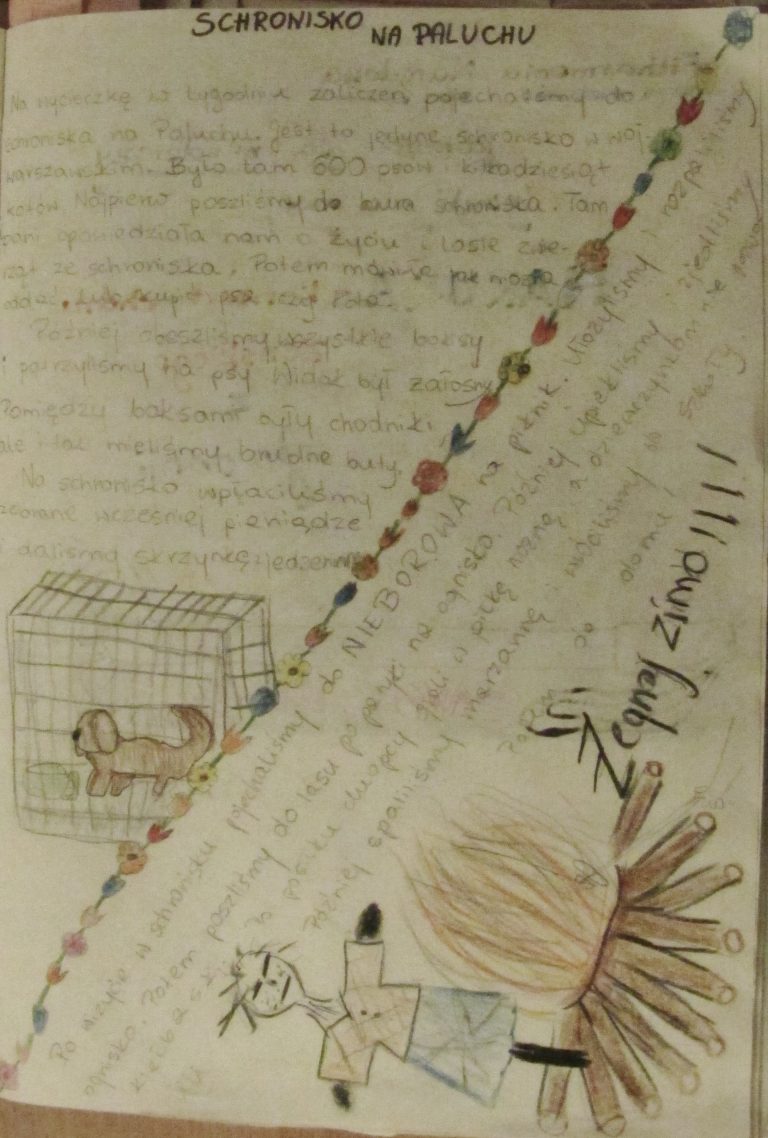 SCHRONISKO NA PALUCHU
Na wycieczkę w tygodniu zaliczeń pojechaliśmy do
schroniska na Paluchu. Jest to jedyne schronisko w woj.
warszawskim. Było tam 600 psów i kilkadziesiąt
kotów. Najpierw poszliśmy do biura schroniska. Tam
pani opowiedziała nam o życiu i losie zwie-
rząt ze schroniska. Potem mówiła jak można
oddać lub kupić psa czy kota.
Później obeszliśmy wszystkie boksy
i patrzyliśmy na psy. Widok był żałosny.
Pomiędzy boksami były chodniki
ale i tak mieliśmy brudne buty.
Na schronisko wpłaciliśmy
zebrane wcześniej pieniądze
i daliśmy skrzynkę jedzenia.
Po wizycie w schronisku pojechaliśmy do NIEBOROWA na piknik. Ułożyliśmy i rozpaliliśmy
ognisko. Potem poszliśmy do lasu po patyki na ognisko. Później upiekliśmy i zjedliśmy
kiełbaski. Po posiłku chłopcy grali w piłkę nożną, a dziewczynkom nie
Później spaliliśmy marzannę i wróciliśmy do szkoły.
Potem do domu.
Żegnaj zimo !!!!